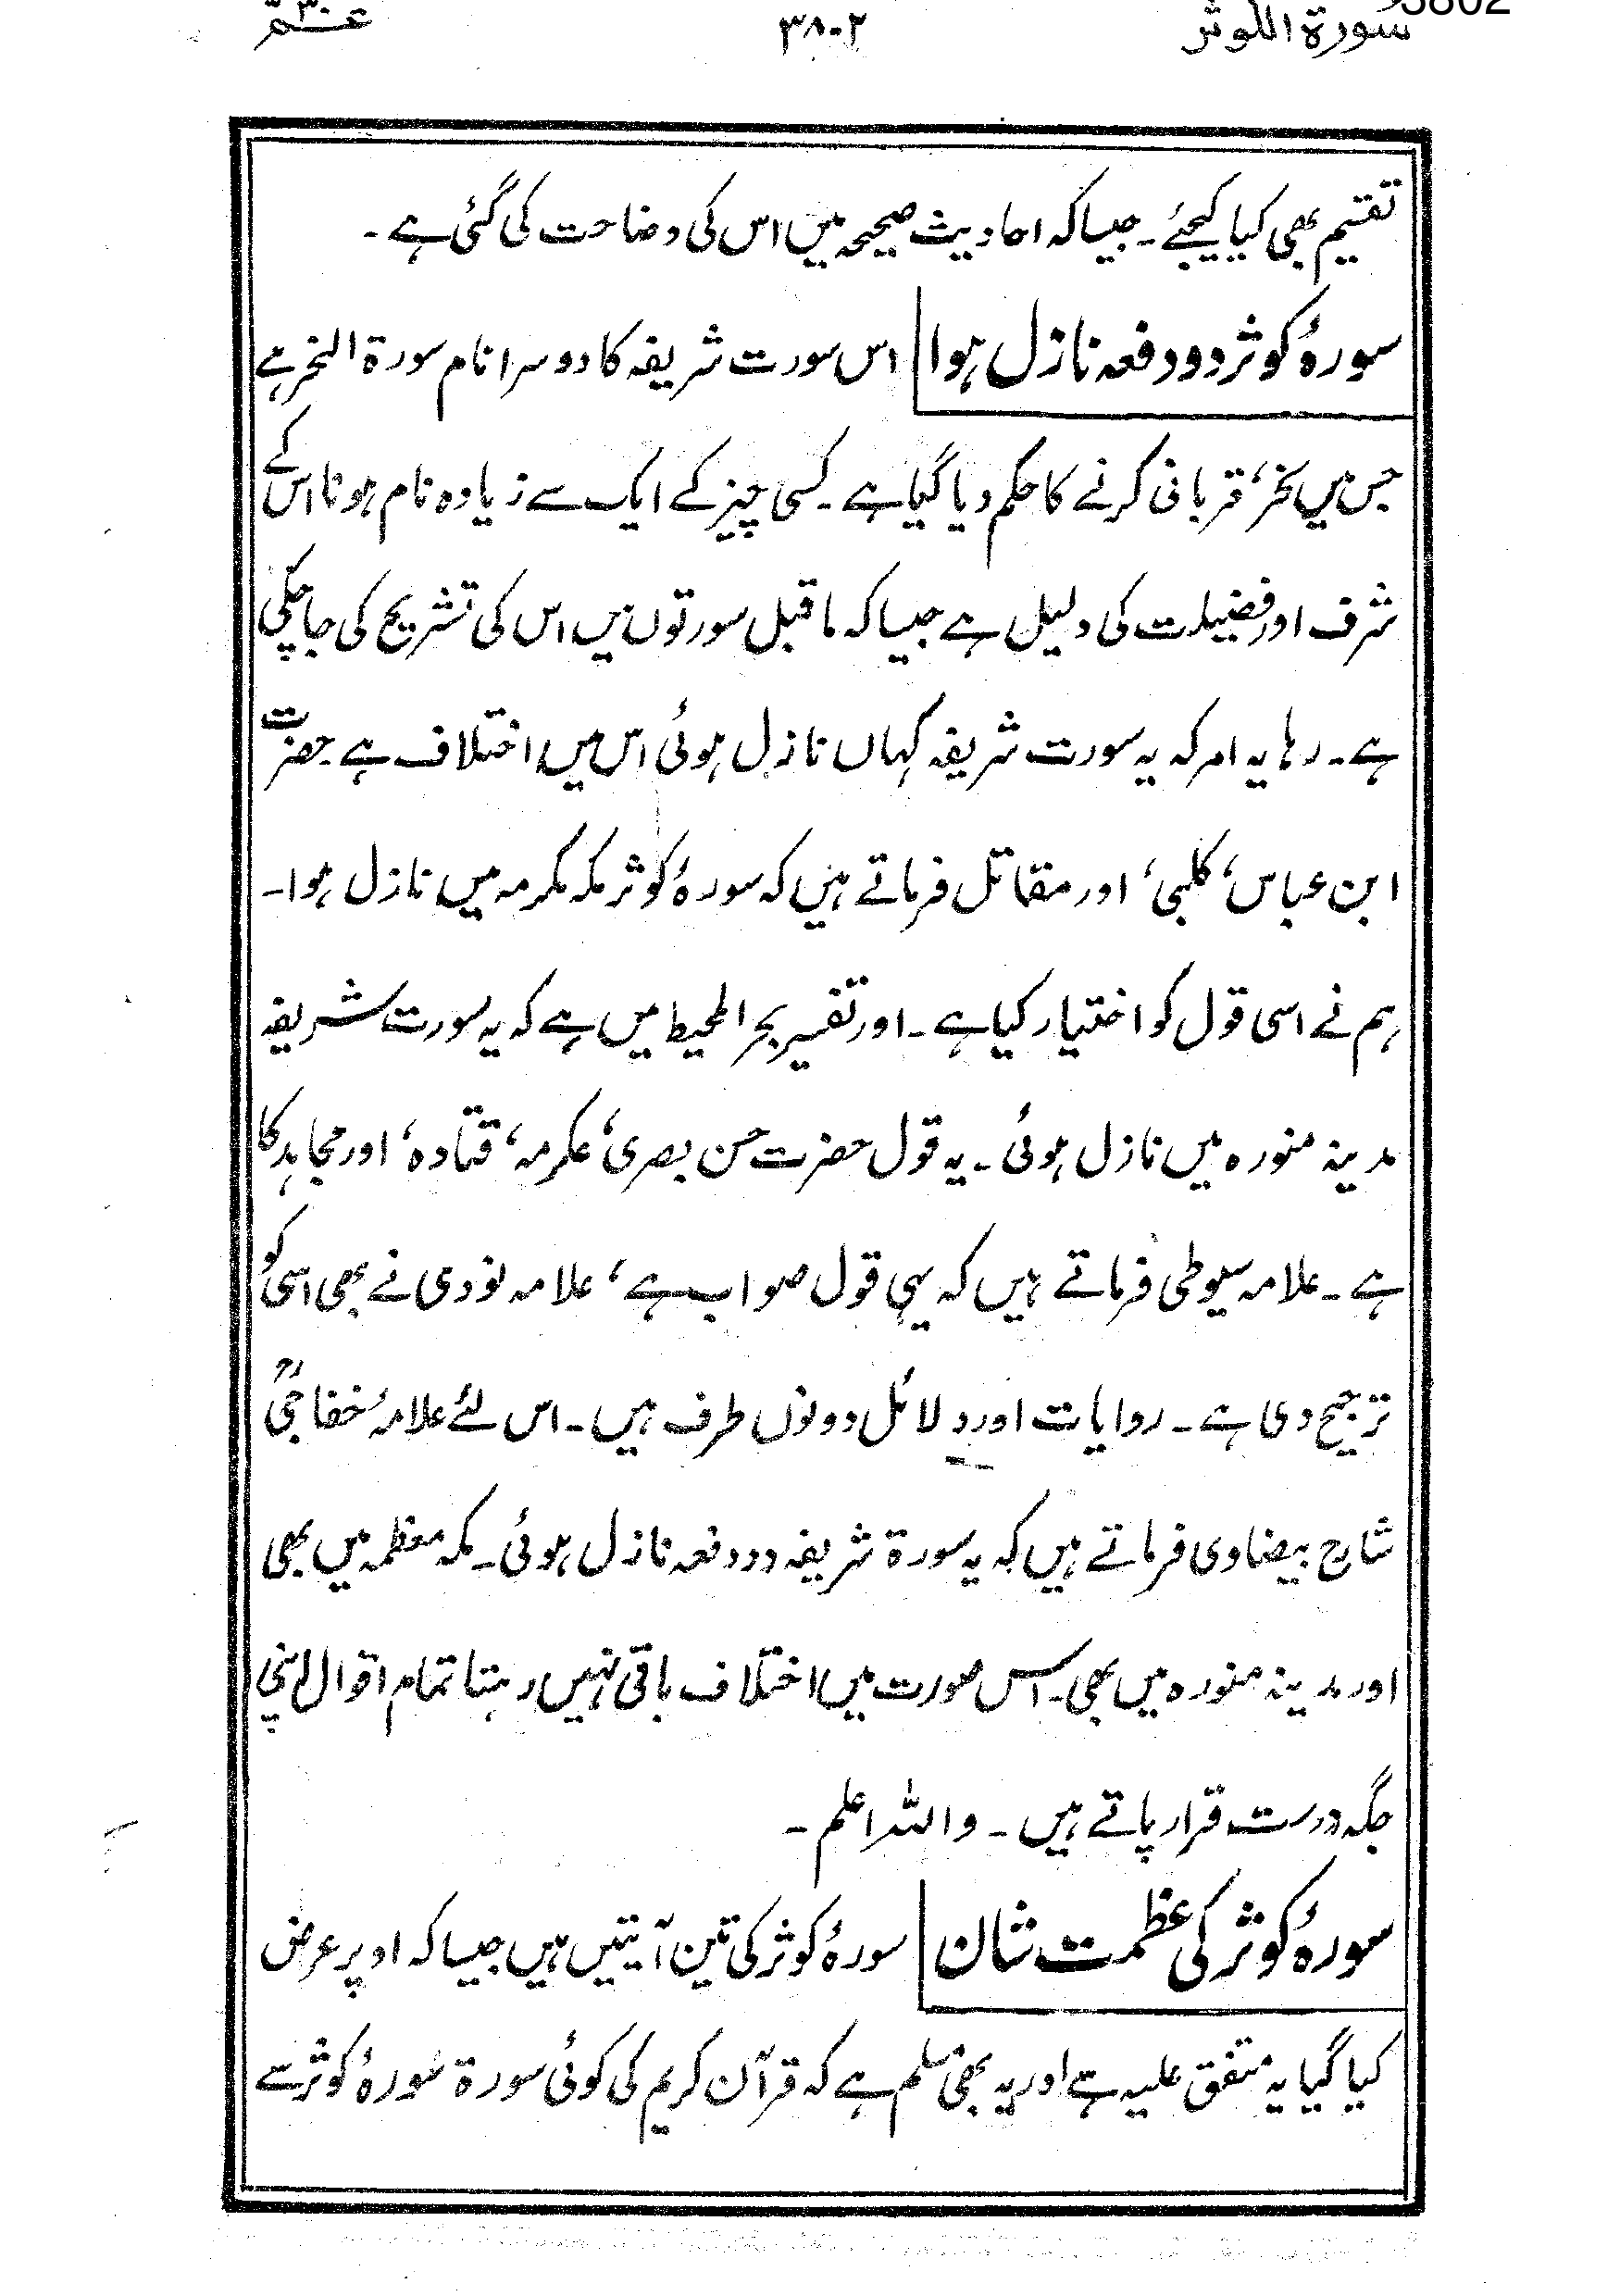 سُورة الکوثر ۳۸۰۲ عمّ ۳۰
3802
تقسیم بھی کیا کیجئے۔ جیسا کہ احادیث صحیحہ میں اس کی وضاحت کی گئی ہے۔
سورۂ کوثر دو دفعہ نازل ہوا اس سورت شریفہ کا دوسرا نام سورۃ النحر ہے
جس میں نحر، قربانی کرنے کا حکم دیا گیا ہے۔ کسی چیز کے ایک سے زیادہ نام ہونا اس کے
شرف اور فضیلت کی دلیل ہے جیسا کہ ماقبل سورتوں میں اس کی تشریح کی جا چکی
ہے۔ رہا یہ امر کہ یہ سورت شریفہ کہاں نازل ہوئی اس میں اختلاف ہے حضرت
ابن عباس، کلبی، اور مقاتل فرماتے ہیں کہ سورۂ کوثر مکہ مکرمہ میں نازل ہوا۔
ہم نے اسی قول کو اختیار کیا ہے۔ اور تفسیر بحر المحیط میں ہے کہ یہ سورت شریفہ
مدینہ منورہ میں نازل ہوئی۔ یہ قول حضرت حسن بصری، عکرمہ، قتادہ، اور مجاہد کا
ہے۔ علامہ سیوطی فرماتے ہیں کہ یہی قول صواب ہے، علامہ نووی نے بھی اسی کو
ترجیح دی ہے۔ روایات اور دلائل دونوں طرف ہیں۔ اس لئے علامہ خفاجیؒ
شارح بیضاوی فرماتے ہیں کہ یہ سورۃ شریفہ دو دفعہ نازل ہوئی۔ مکہ معظمہ میں بھی
اور مدینہ منورہ میں بھی۔ اس صورت میں اختلاف باقی نہیں رہتا تمام اقوال اپنی
جگہ درست قرار پاتے ہیں۔ واللہ اعلم۔
سورۂ کوثر کی عظمت شان سورۂ کوثر کی تین آیتیں ہیں جیسا کہ اوپر عرض
کیا گیا یہ متفق علیہ ہے اور یہ بھی مسلم ہے کہ قرآن کریم کی کوئی سورۃ سورۂ کوثر سے